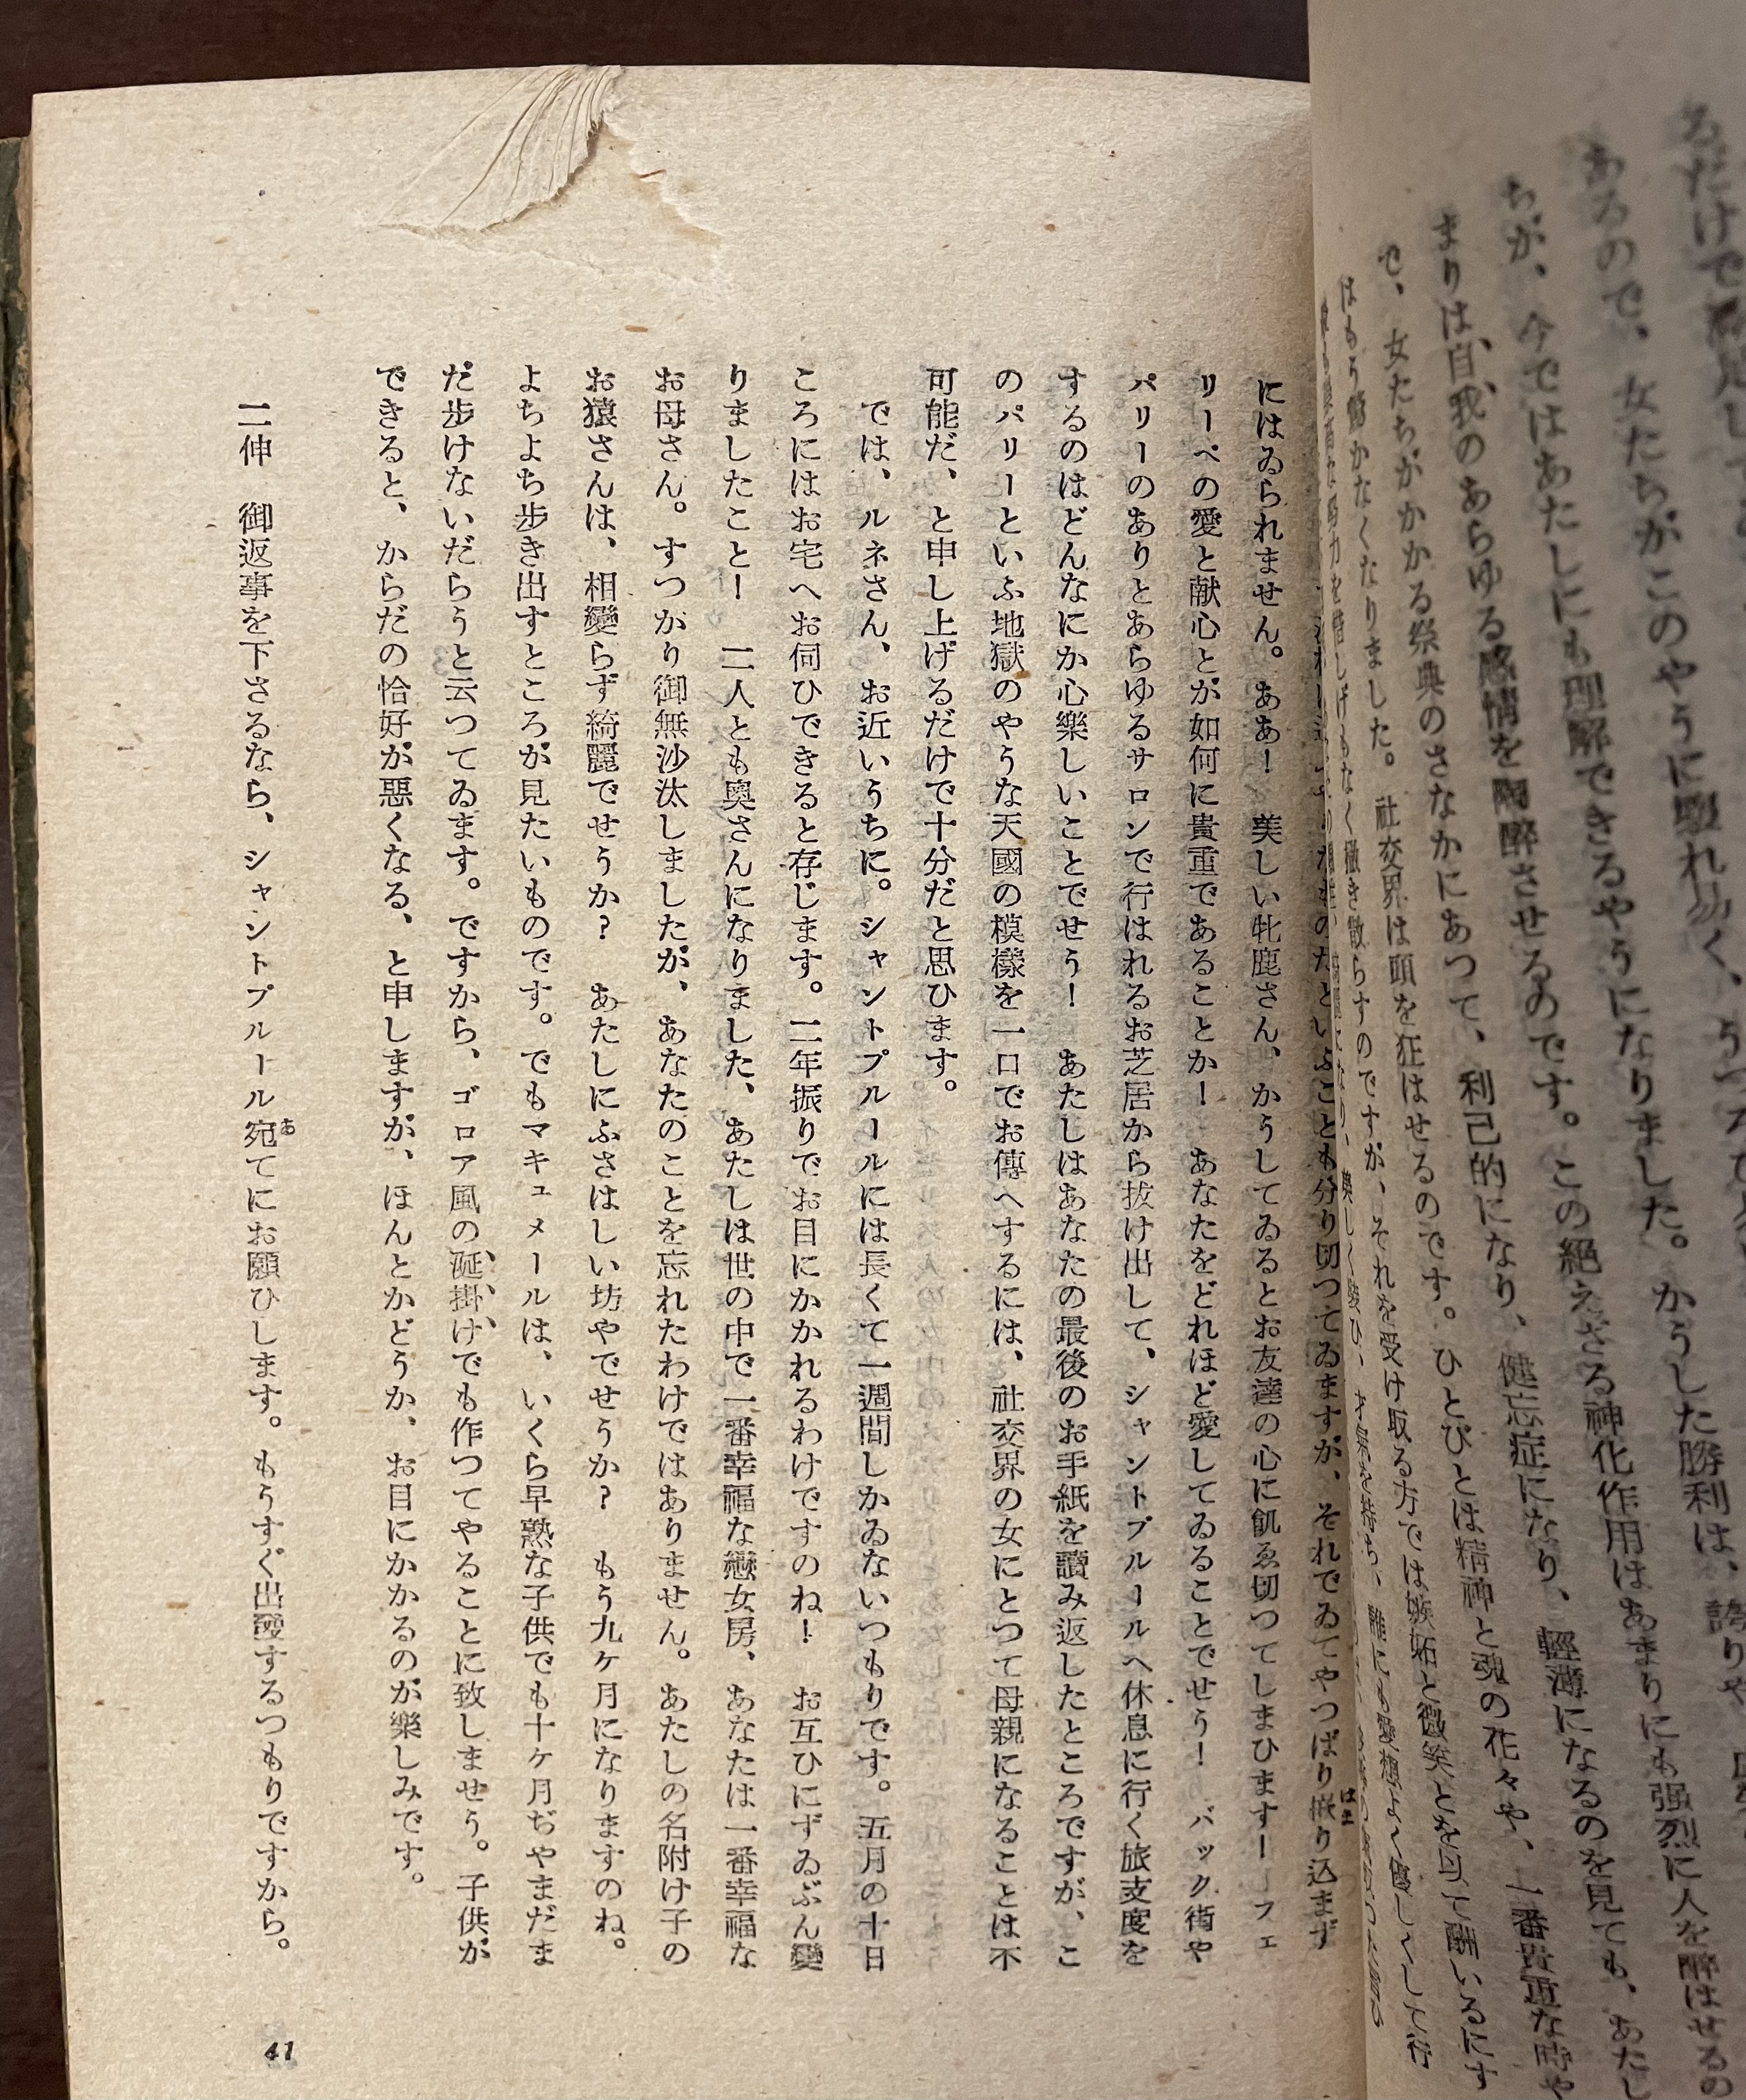 るだけで
あるので、女たちがこのやうに驅れ易く、うつろひ
ちが、今ではあたしにも理解できるやうになりました。かうした勝利は、誇りや
まりは自我のあらゆる感情を陶醉させるのです。この絶えざる神化作用はあまりにも强烈に人を醉はせるの
で、女たちがかかる祭典のさなかにあつて、利己的になり、健忘症になり、輕薄になるのを見ても、あたし
はもう驚かなくなりました。社交界は頭を狂はせるのです。ひとびとは精神と魂の花々や、一番貴重な時や
惜しげもなく撒き散らすのですが、それを受け取る方では嫉妬と微笑とを以て酬いるにす
たものだといふことも分り切つてゐますが、それでゐてやつぱり嵌り込まず
はま
にはゐられません。ああ！　美しい牝鹿さん、かうしてゐるとお友達の心に飢ゑ切つてしまひますー　フェ
リーペの愛と献心とが如何に貴重であることか！　あなたをどれほど愛してゐることでせう！　バック街や
パリーのありとあらゆるサロンで行はれるお芝居から拔け出して、シャントプルールへ休息に行く旅支度を
するのはどんなにか心樂しいことでせう！　あたしはあなたの最後のお手紙を讀み返したところですが、こ
のパリーといふ地獄のやうな天國の模樣を一口でお傳へするには、社交界の女にとつて母親になることは不
可能だ、と申し上げるだけで十分だと思ひます。
では、ルネさん、お近いうちに。シャントプルールには長くて一週間しかゐないつもりです。五月の十日
ころにはお宅へお伺ひできると存じます。二年振りでお目にかかれるわけですのね！　お互ひにずゐぶん變
りましたこと！　二人とも奧さんになりました、あたしは世の中で一番幸福な戀女房、あなたは一番幸福な
お母さん。すつかり御無沙汰しましたが、あなたのことを忘れたわけではありません。あたしの名附け子の
お猿さんは、相變らず綺麗でせうか？　あたしにふさはしい坊やでせうか？　もう九ヶ月になりますのね。
よちよち歩き出すところが見たいものです。でもマキュメールは、いくら早熟な子供でも十ヶ月ぢやまだま
だ歩けないだらうと云つてゐます。ですから、ゴロア風の涎掛けでも作つてやることに致しませう。子供が
できると、からだの恰好が惡くなる、と申しますが、ほんとかどうか、お目にかかるのが樂しみです。
二伸　御返事を下さるなら、シャントプルール宛てにお願ひします。もうすぐ出發するつもりですから。
あ
41